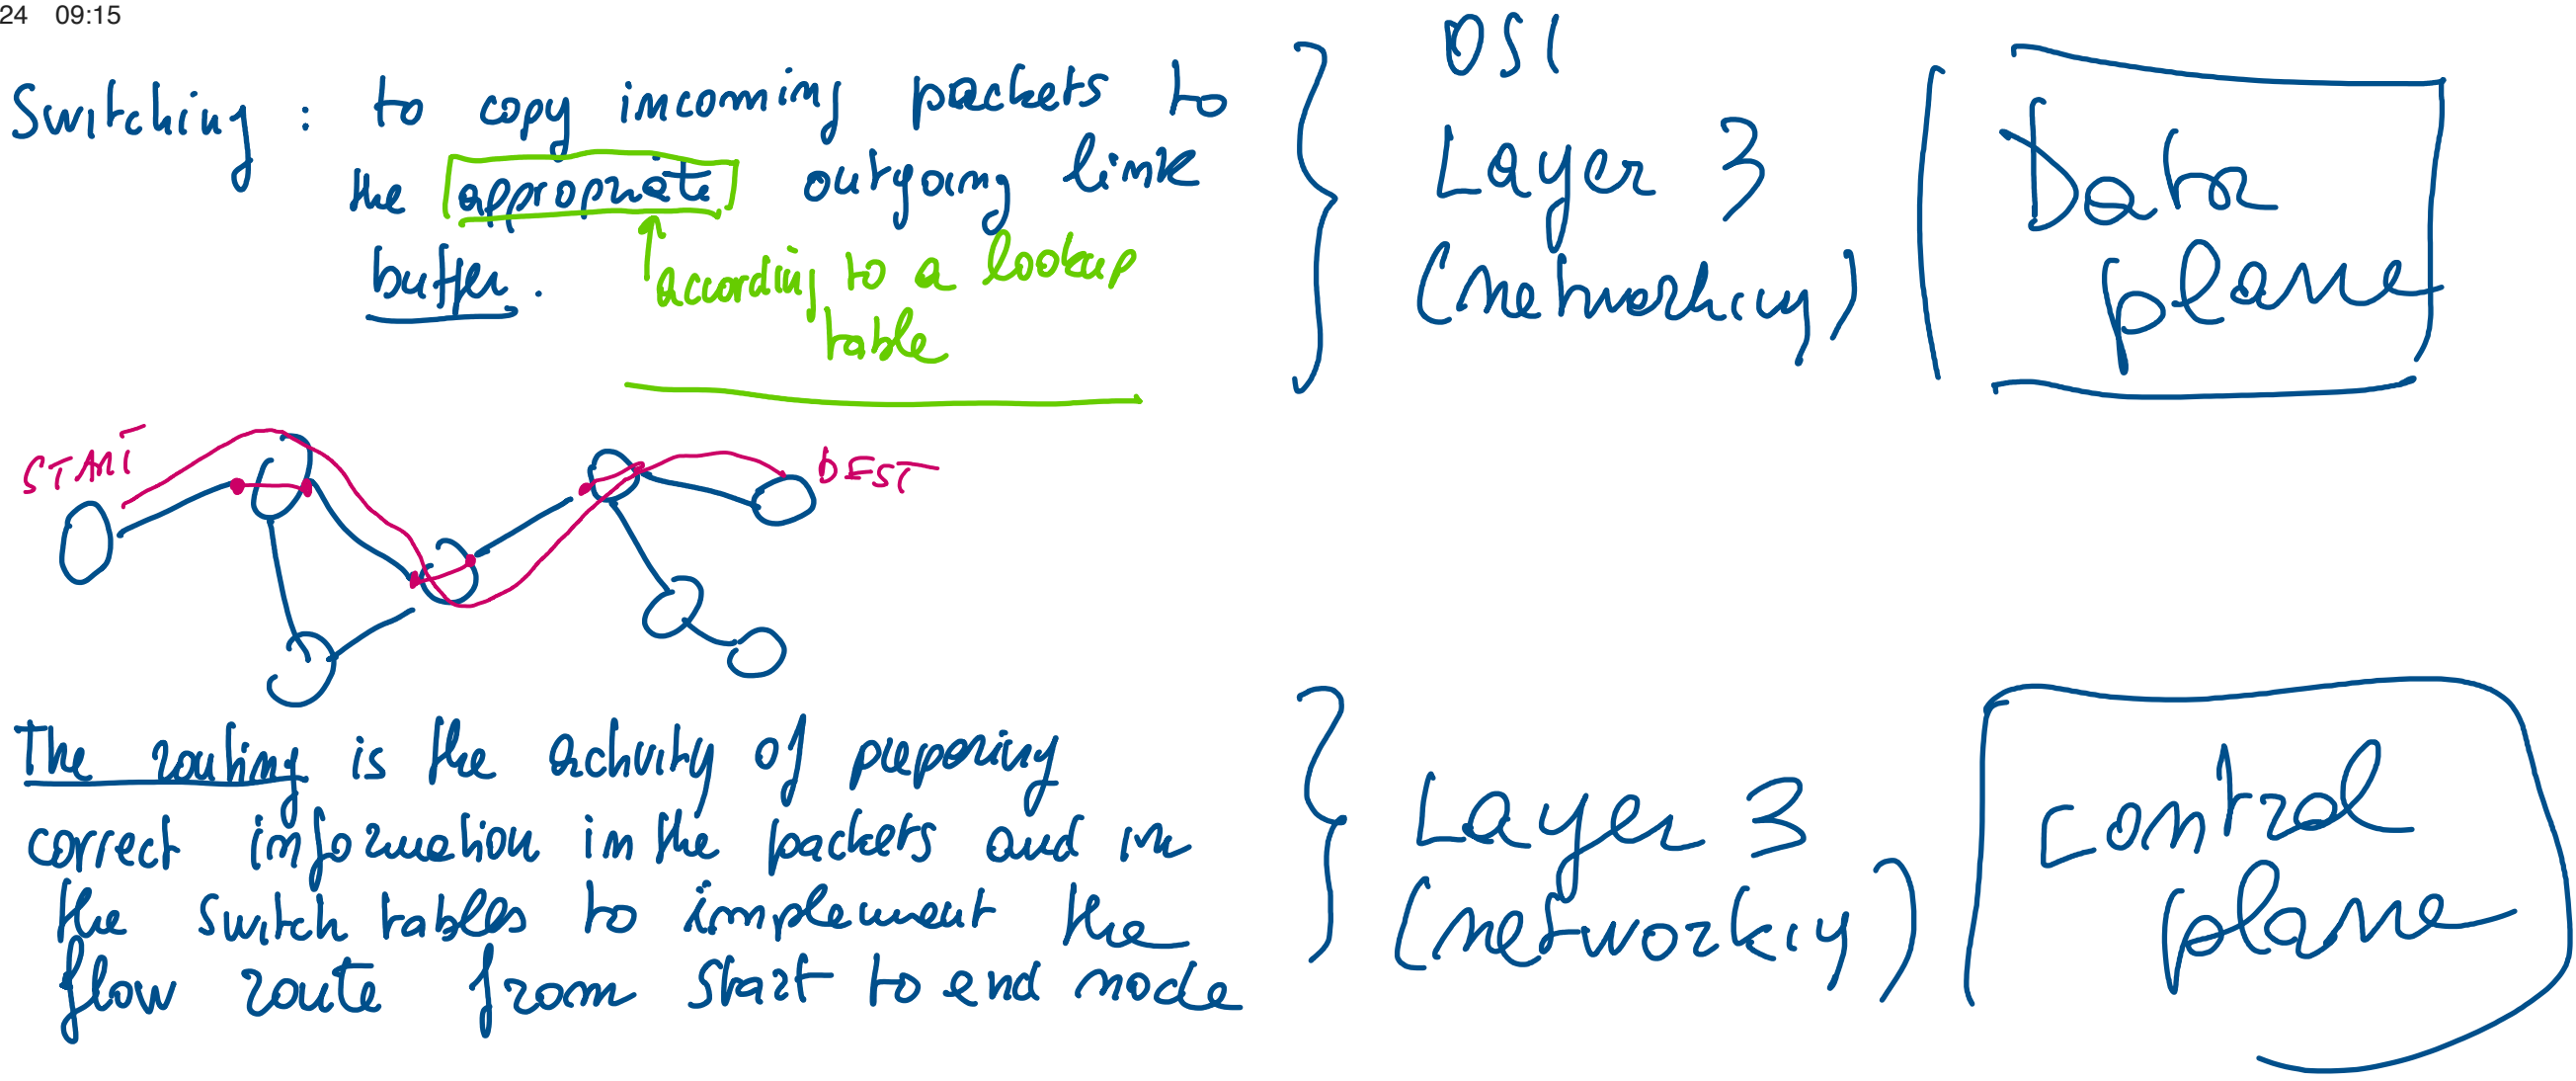 24 09:15
Switching : to copy incoming packets to
the appropriate outgoing link
buffer.
according to a lookup
table
OSI
Layer 3
(networking)
Data
plane
START
DEST
The routing is the activity of preparing
correct information in the packets and in
the switch tables to implement the
flow route from start to end node
Layer 3
(networking)
control
plane